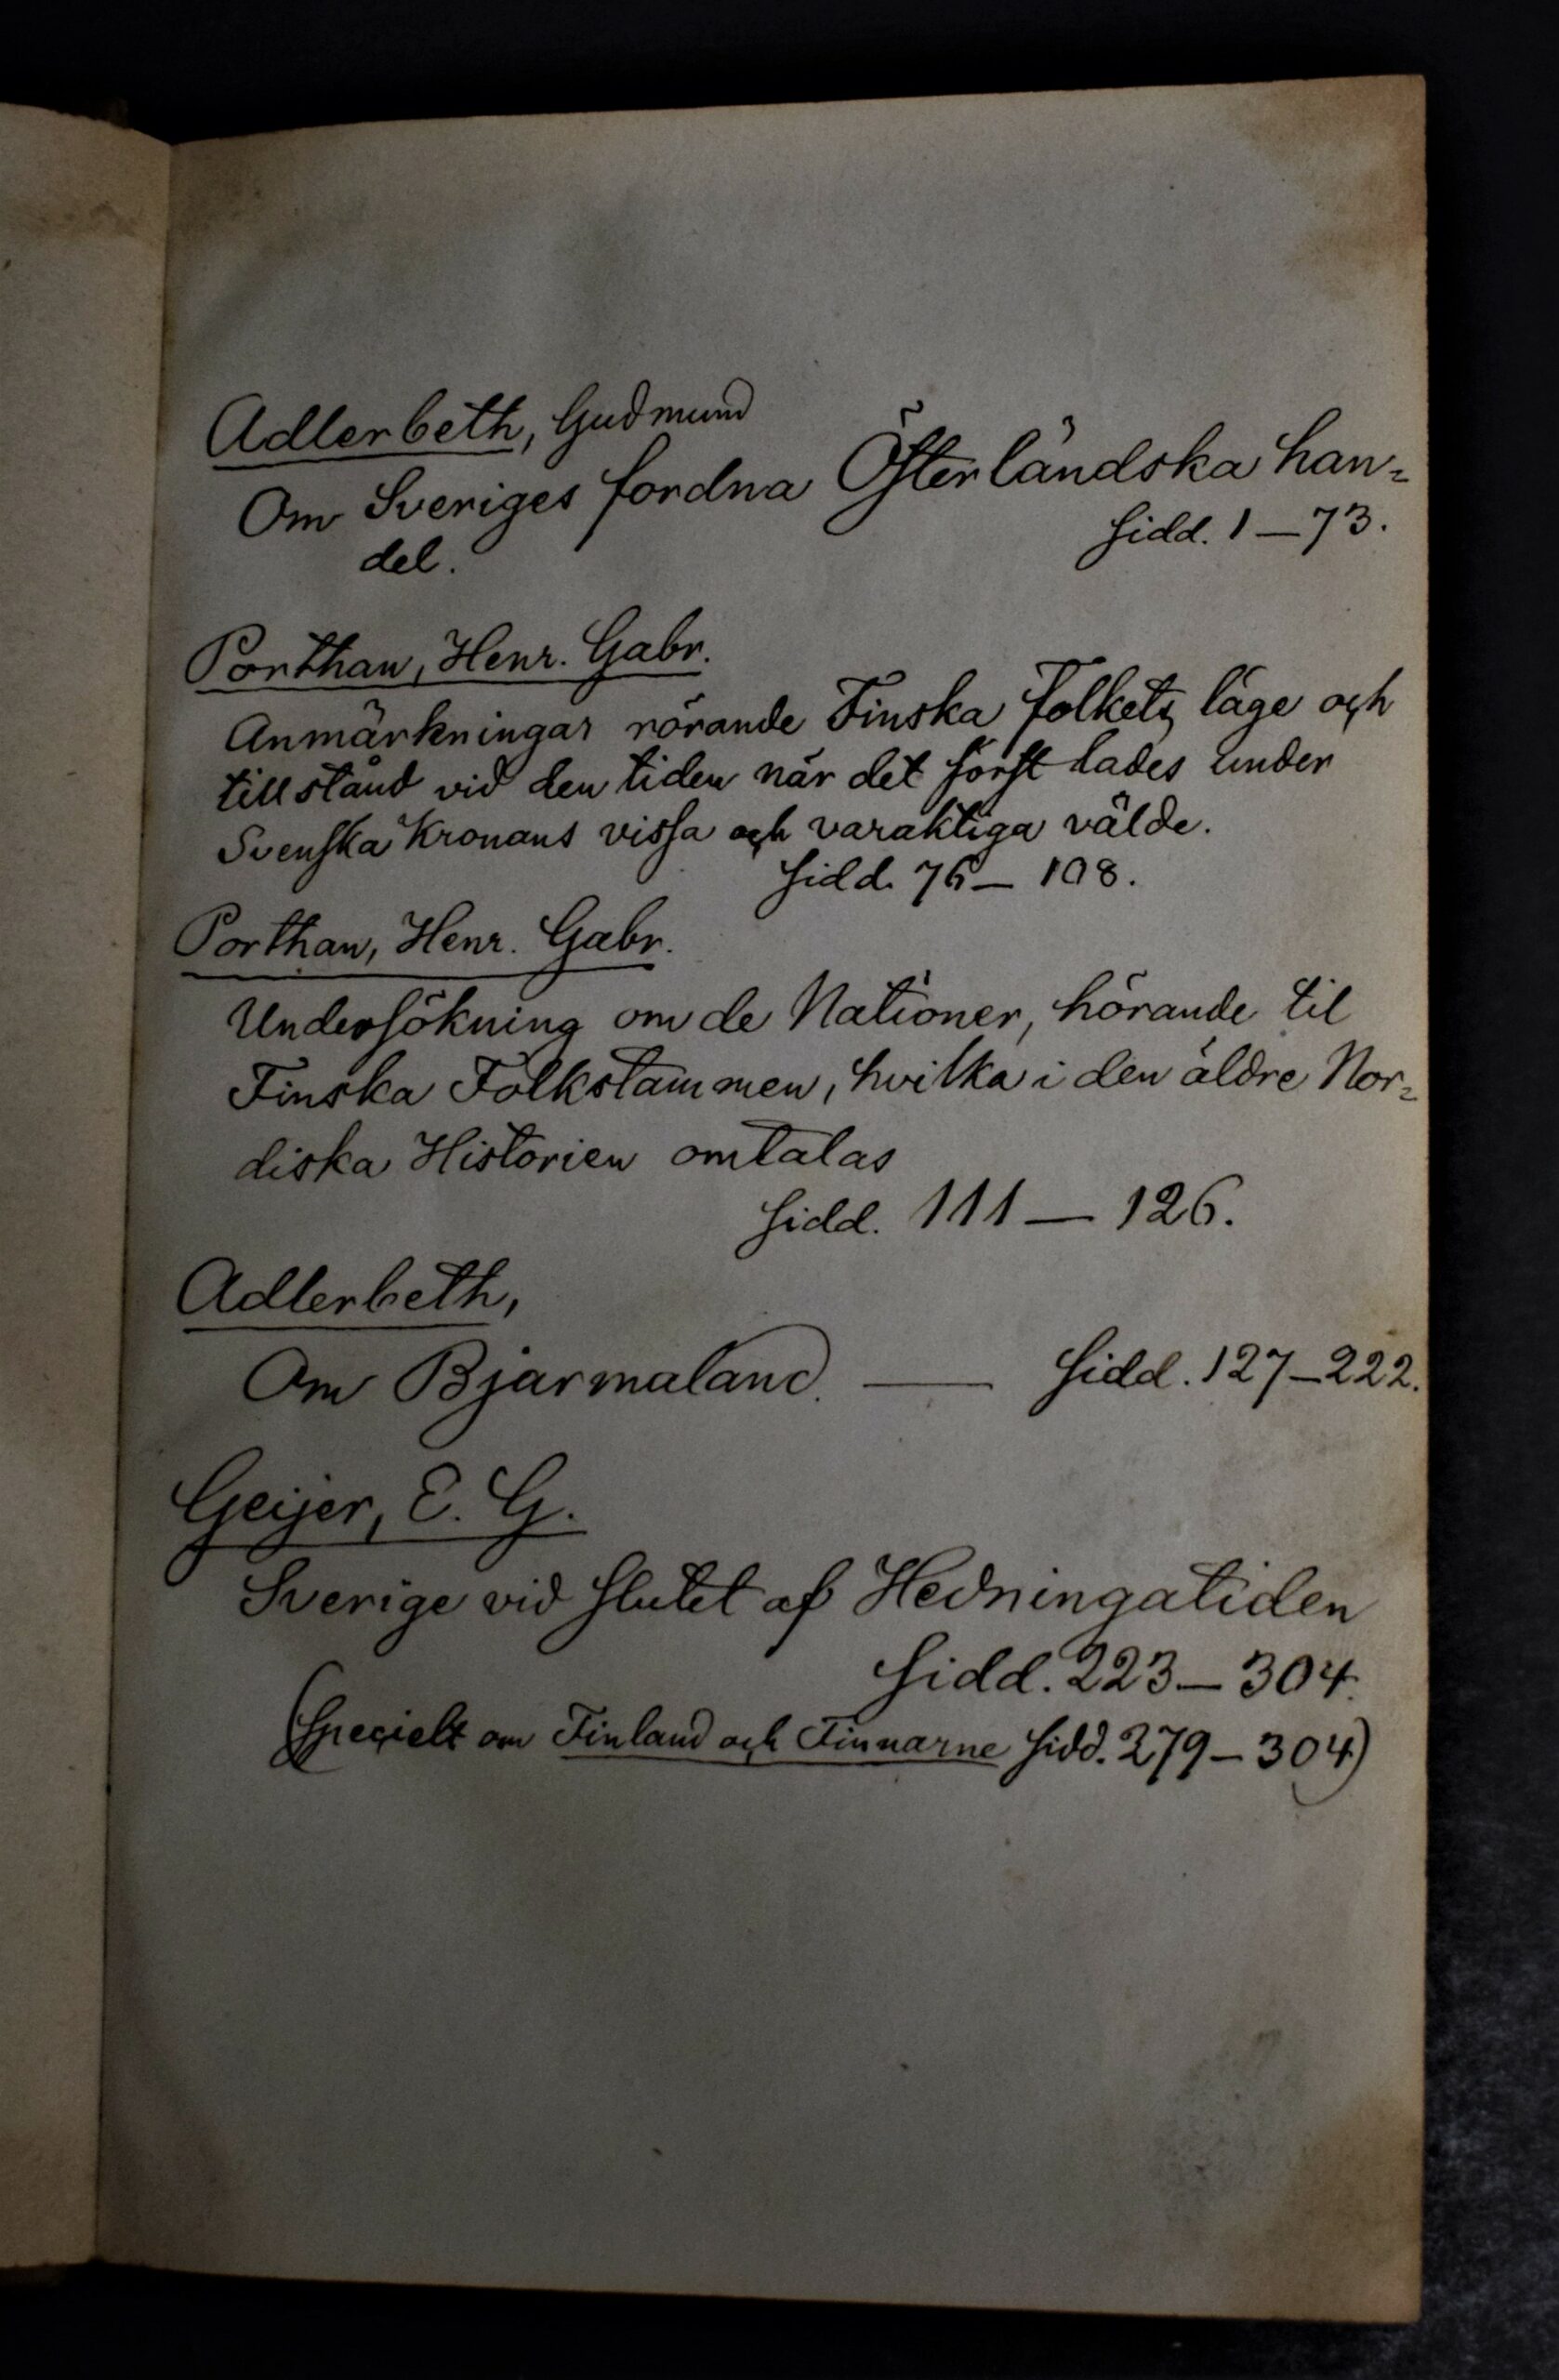 Adlerbeth, Gudmund
Om Sveriges fordna Österländska han=
del.
Sidd. 1—73.
Porthan, Henr. Gabr.
Anmärkningar rörande Finska folkets läge och
tillstånd vid den tiden när det först lades under
Svenska Kronans vissa och varaktiga välde.
Sidd. 76—108.
Porthan, Henr. Gabr.
Undersökning om de Nationer, hörande til
Finska Folkstammen, hvilka i den äldre Nor=
diska Historien omtalas
Sidd. 111—126.
Adlerbeth,
Om Bjarmaland. — Sidd. 127—222.
Geijer, E. G.
Sverige vid slutet af Hedningatiden
Sidd. 223—304.
(Specielt om Finland och Finnarne Sidd. 279—304)